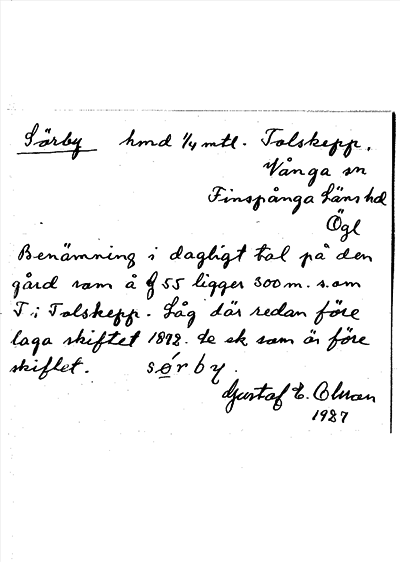 Sörby hmd 1/4 mtl. Tolskepp.
Vånga sn
Finspånga Läns hd
Ögl
Benämning i dagligt tal på den
gård som å 55 ligger 300 m. s.om
T i Tolskepp. Låg där redan före
laga skiftet 1892. de ek som är före
skiftet. sørby.
Gustaf E. Olsson
1987